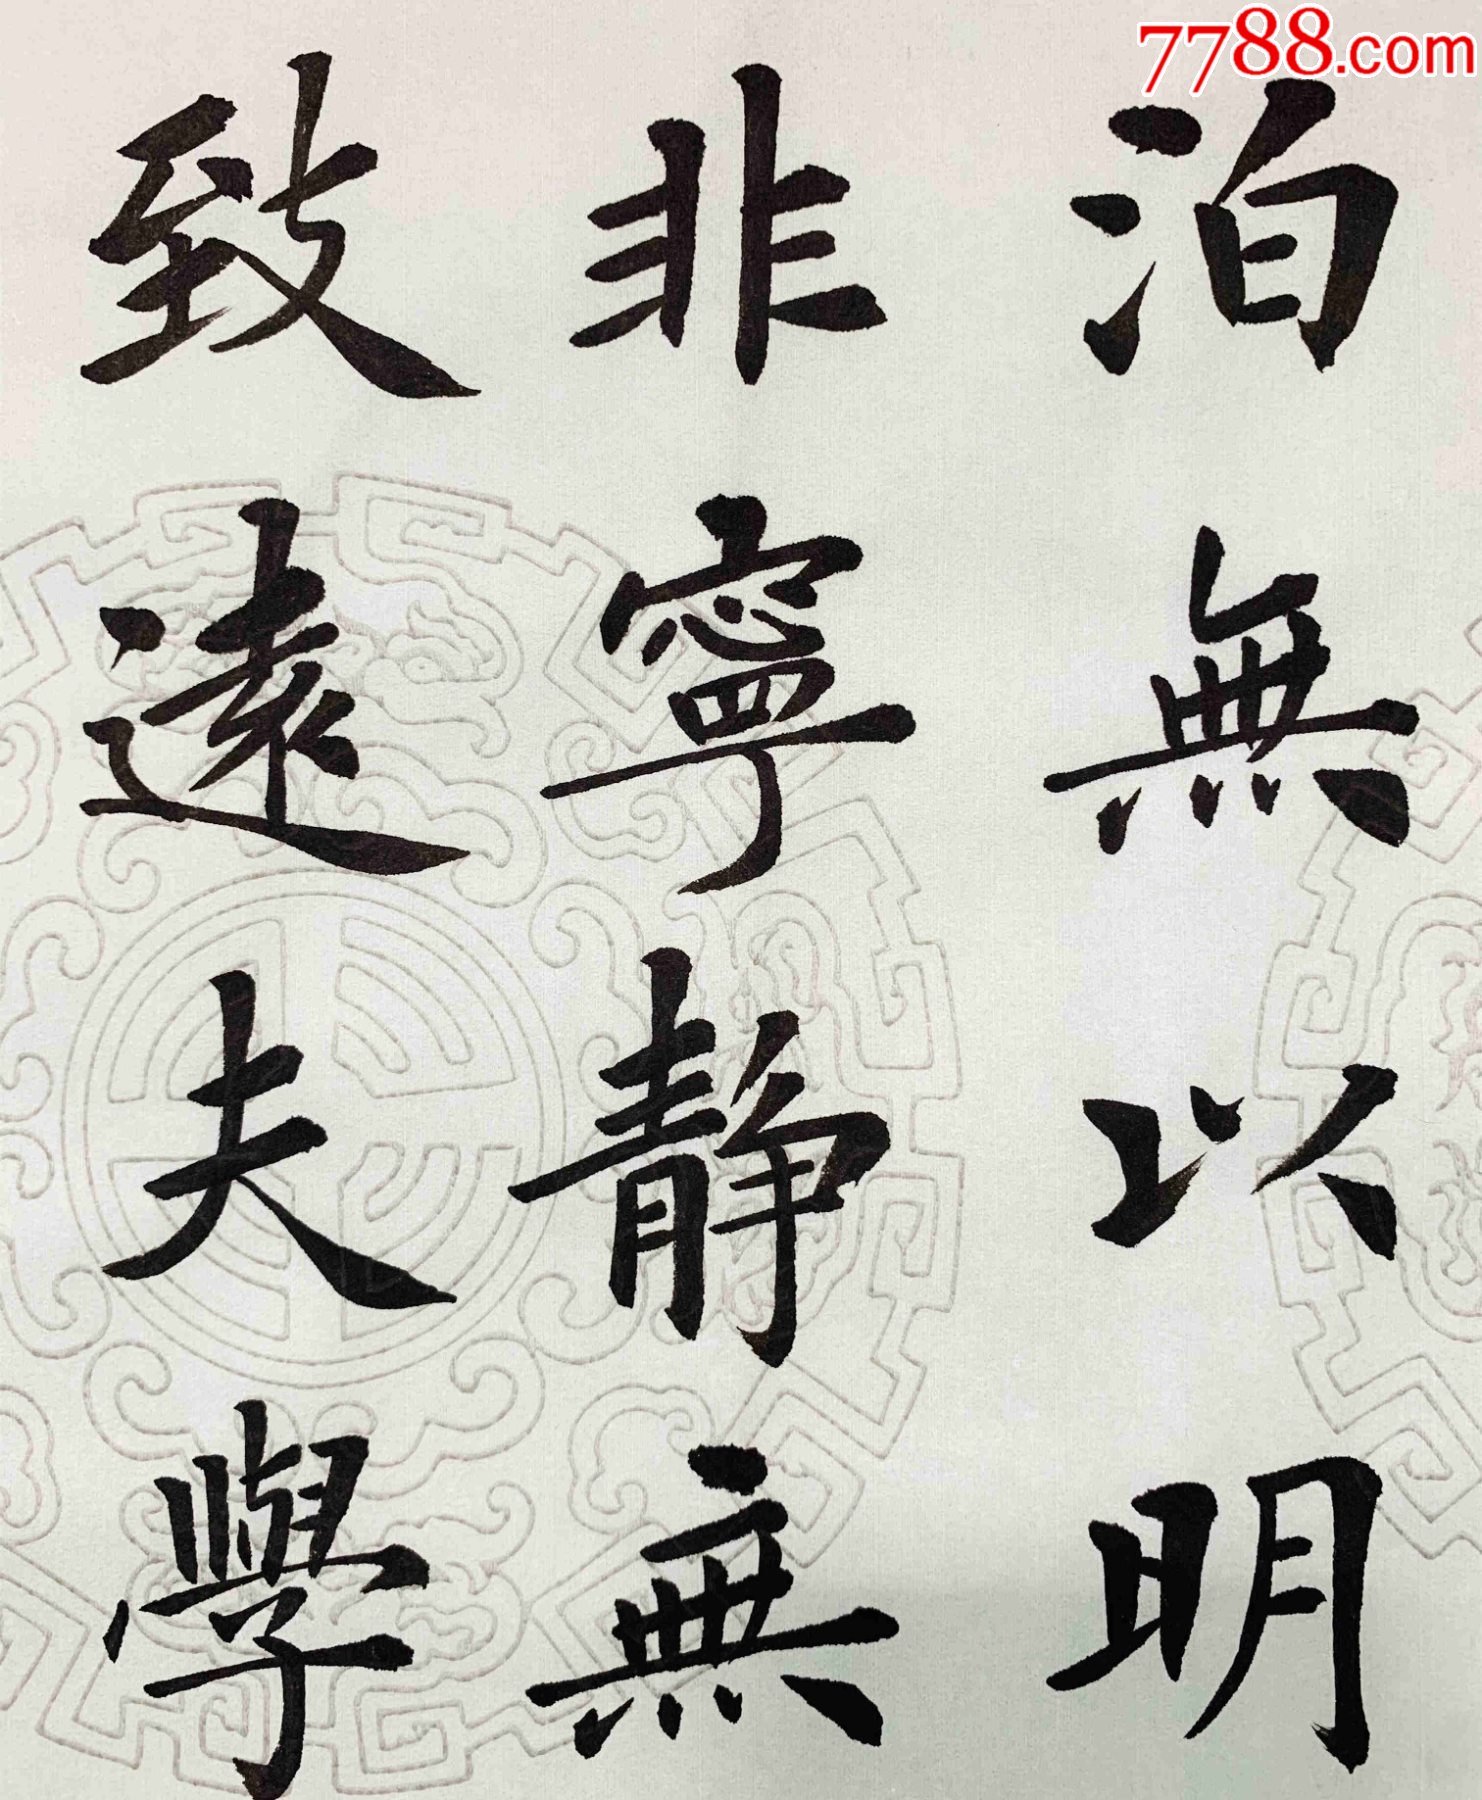 7788.com
泊無以明
非寧静無
致遠夫學